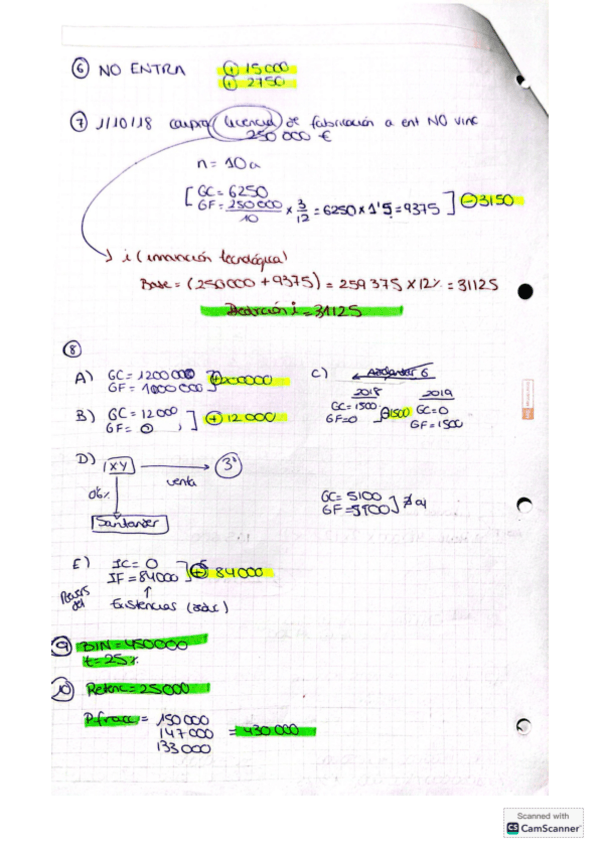 ⑥ NO ENTRA ⊕ 15000
⊕ 2750
⑦ 1/10/18 compra licencia de fabricación a ent NO vinc
250 000 €
n = 10 a
GC = 6250
GF = 250 000 / 10 × 3/12 = 6250 × 1'5 = 9375 ] ⊖ 3150
i (innovación tecnológica)
Base = (250000 + 9375) = 259 375 × 12% = 31125
Deducción i = 31125
⑧
A) GC = 1200 000
GF = 1000 000 ] ⊕ 200000
B) GC = 12 000
GF = 0 ] ⊕ 12 000
C)
2018 2019
GC = 1500 GC = 0
GF = 0 ⊕ 1500 GF = 1500
D) XY → 3º
venta
06%
Santander
GC = 5100
GF = 5100
E) IC = 0
IF = 84000 ] ⊕ 84000
Existencias
⑨ BIN = 450000
t = 25%
⑩ Retenc = 25000
P fracc = 150 000
147 000 = 430 000
133 000
Scanned with
CS CamScanner